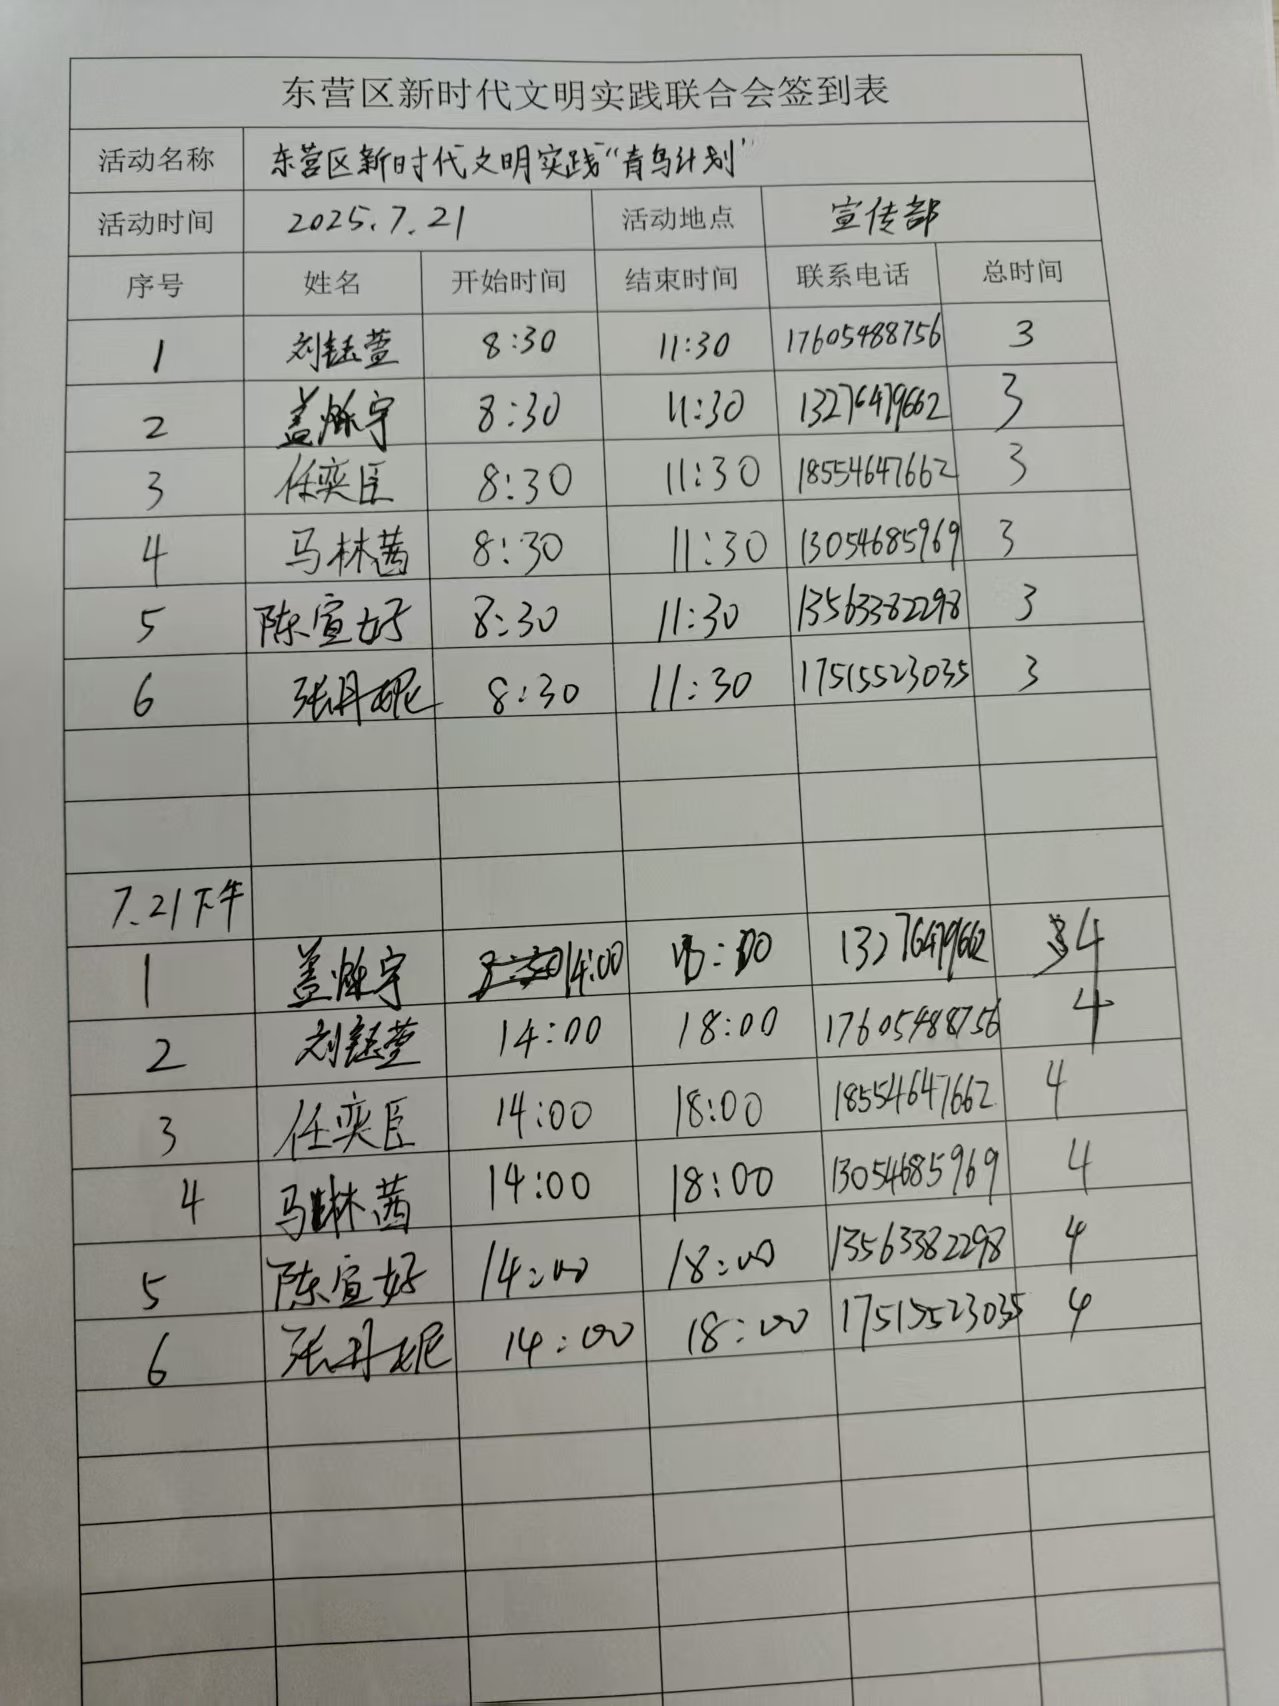 东营区新时代文明实践联合会签到表
活动名称 东营区新时代文明实践“青鸟计划”
活动时间 2025.7.21 活动地点 宣传部
序号 姓名 开始时间 结束时间 联系电话 总时间
1 刘钰萱 8:30 11:30 17605488756 3
2 盖烁宇 8:30 11:30 13276479662 3
3 任奕臣 8:30 11:30 18554647662 3
4 马林茜 8:30 11:30 13054685969 3
5 陈宣妤 8:30 11:30 13563382298 3
6 张丹妮 8:30 11:30 17515523035 3
7.21下午
1 盖烁宇 14:00 13276479662 4
2 刘钰萱 14:00 18:00 17605488756 4
3 任奕臣 14:00 18:00 18554647662 4
4 马林茜 14:00 18:00 13054685969 4
5 陈宣妤 14:00 18:00 13563382298 4
6 张丹妮 14:00 18:00 17515523035 4